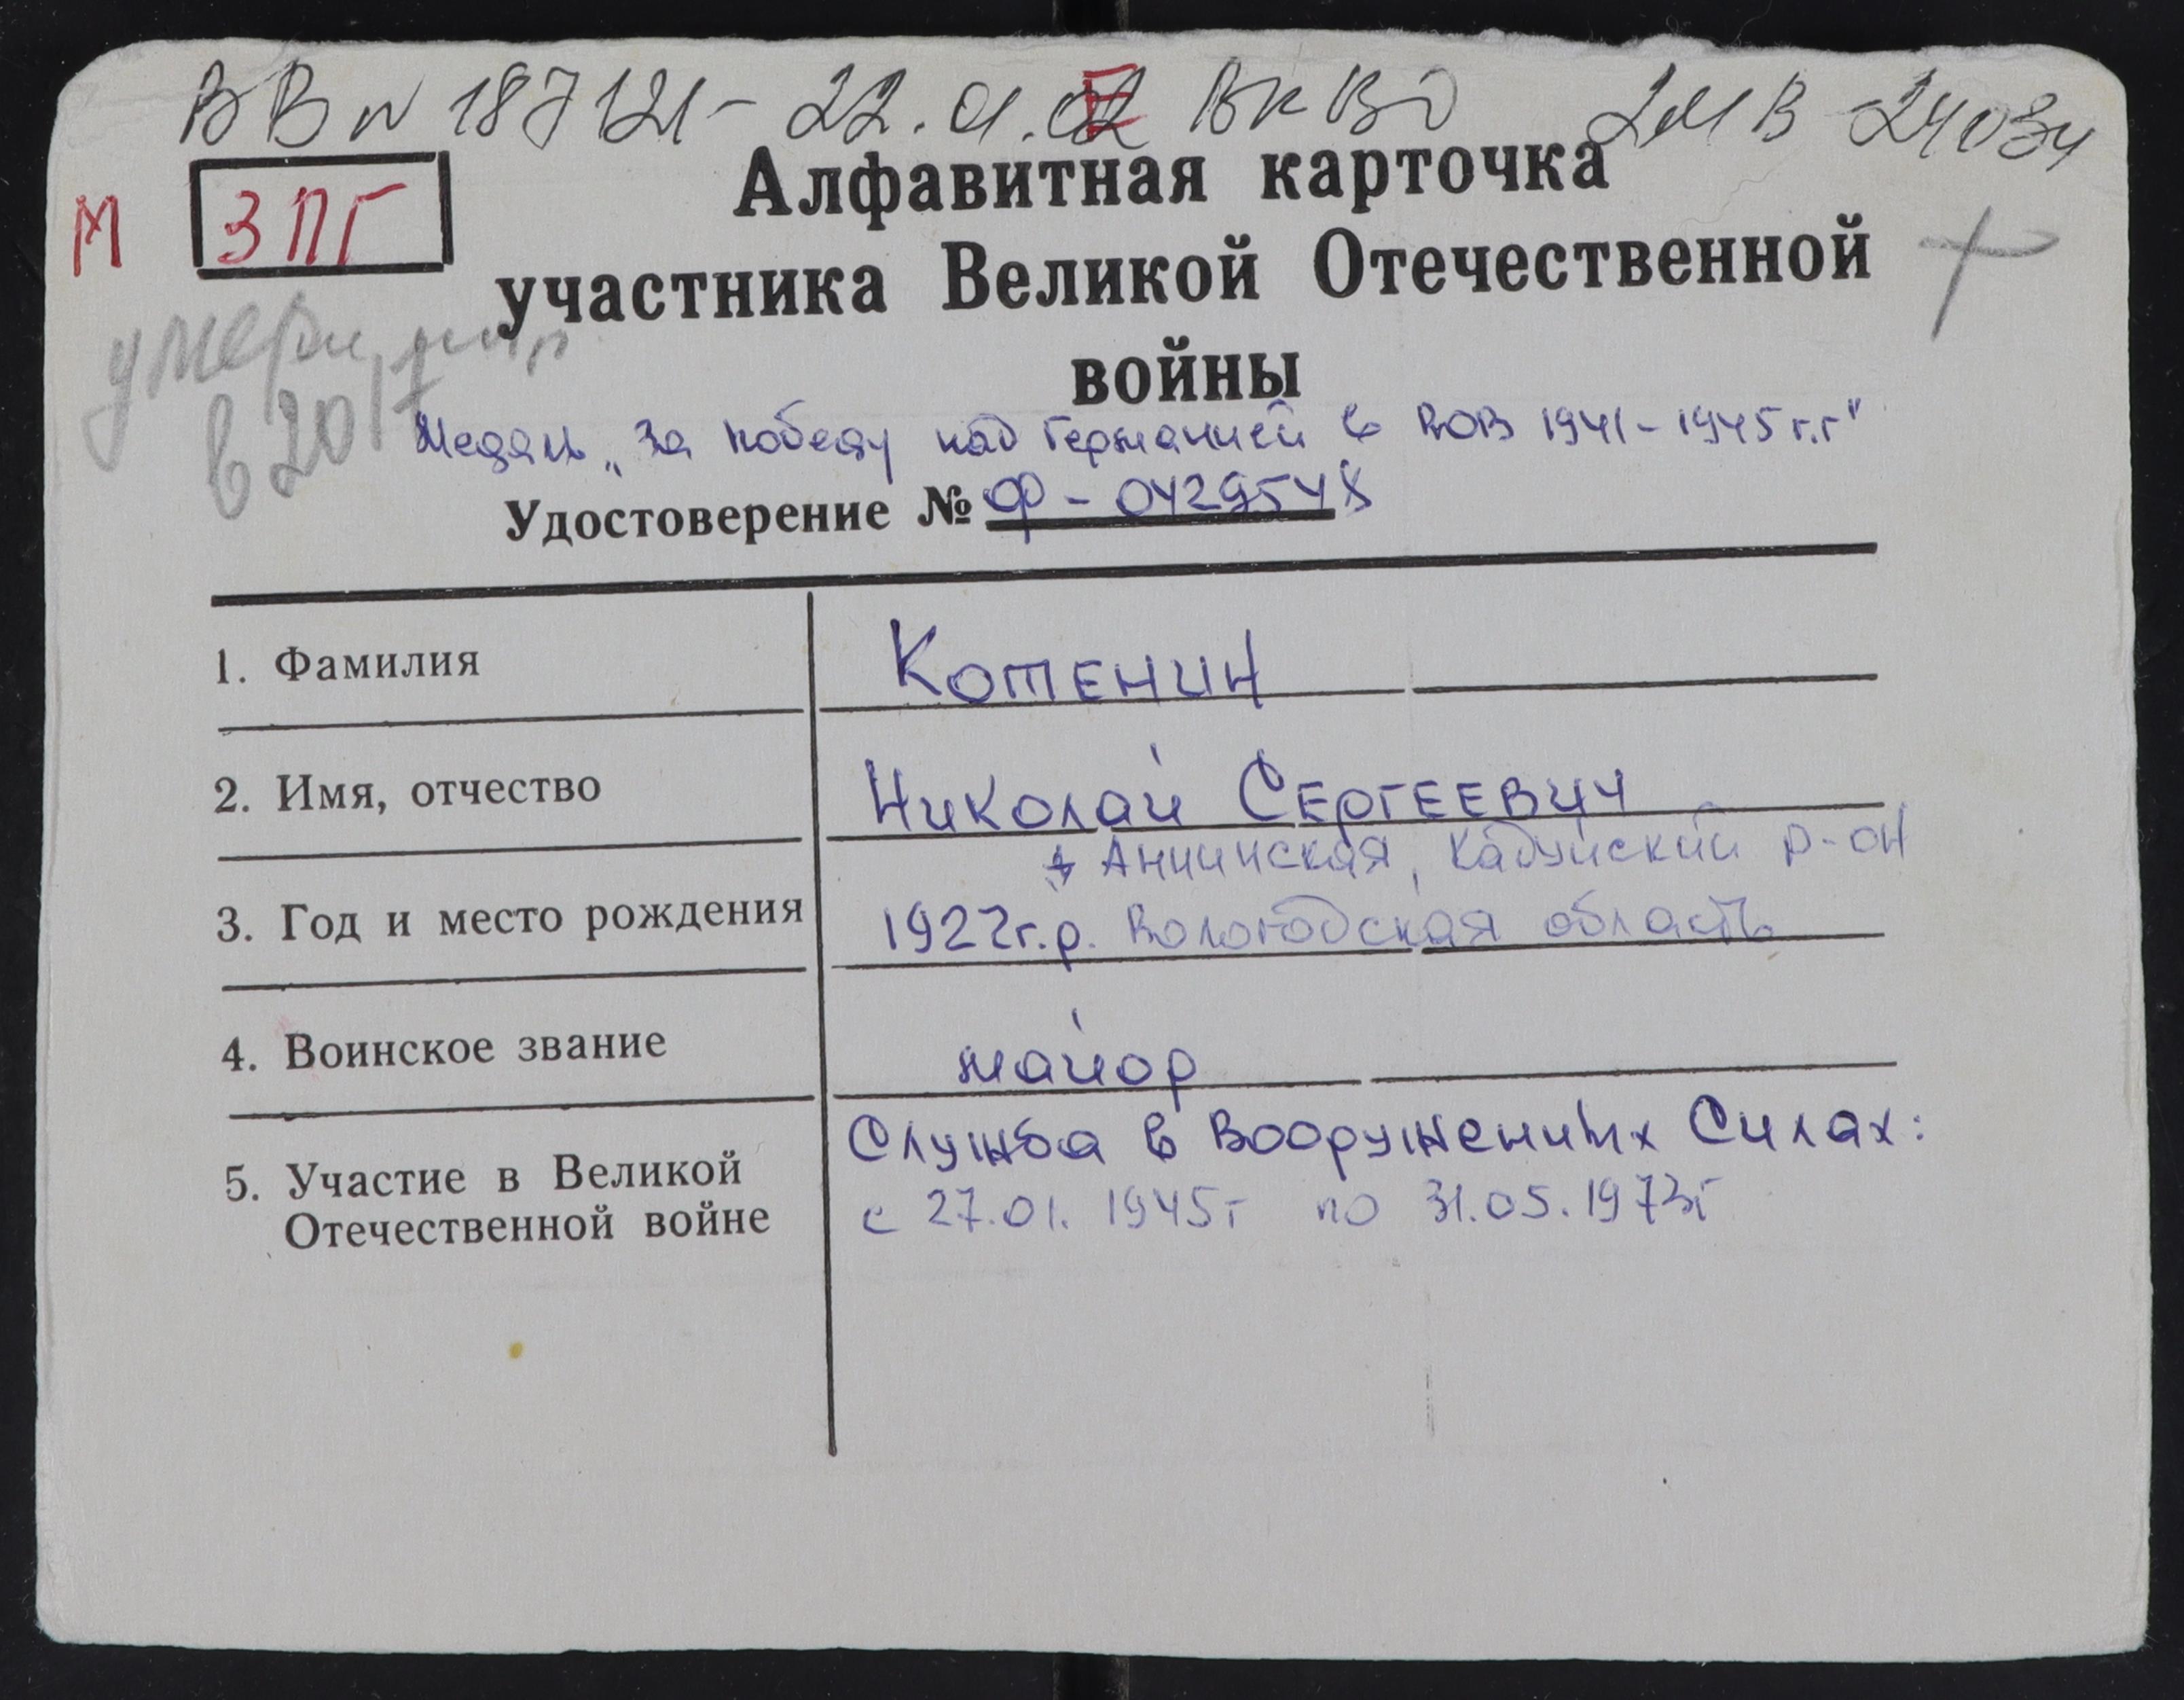 ВВ № 187121 - 22.01.02 ВКВО
М ЗПГ
Алфавитная карточка
участника Великой Отечественной
войны
в 2017
Медаль „За победу над Германией в ВОВ 1941-1945 г.г"
Удостоверение № Ф - 0429548
1. Фамилия Котенин
2. Имя, отчество Николай Сергеевич
Аннинская, Кадуйский р-он
3. Год и место рождения 1927г.р. Вологодская область
4. Воинское звание майор
5. Участие в Великой Служба в Вооружениых Силах:
Отечественной войне с 27.01.1945г по 31.05.1973г